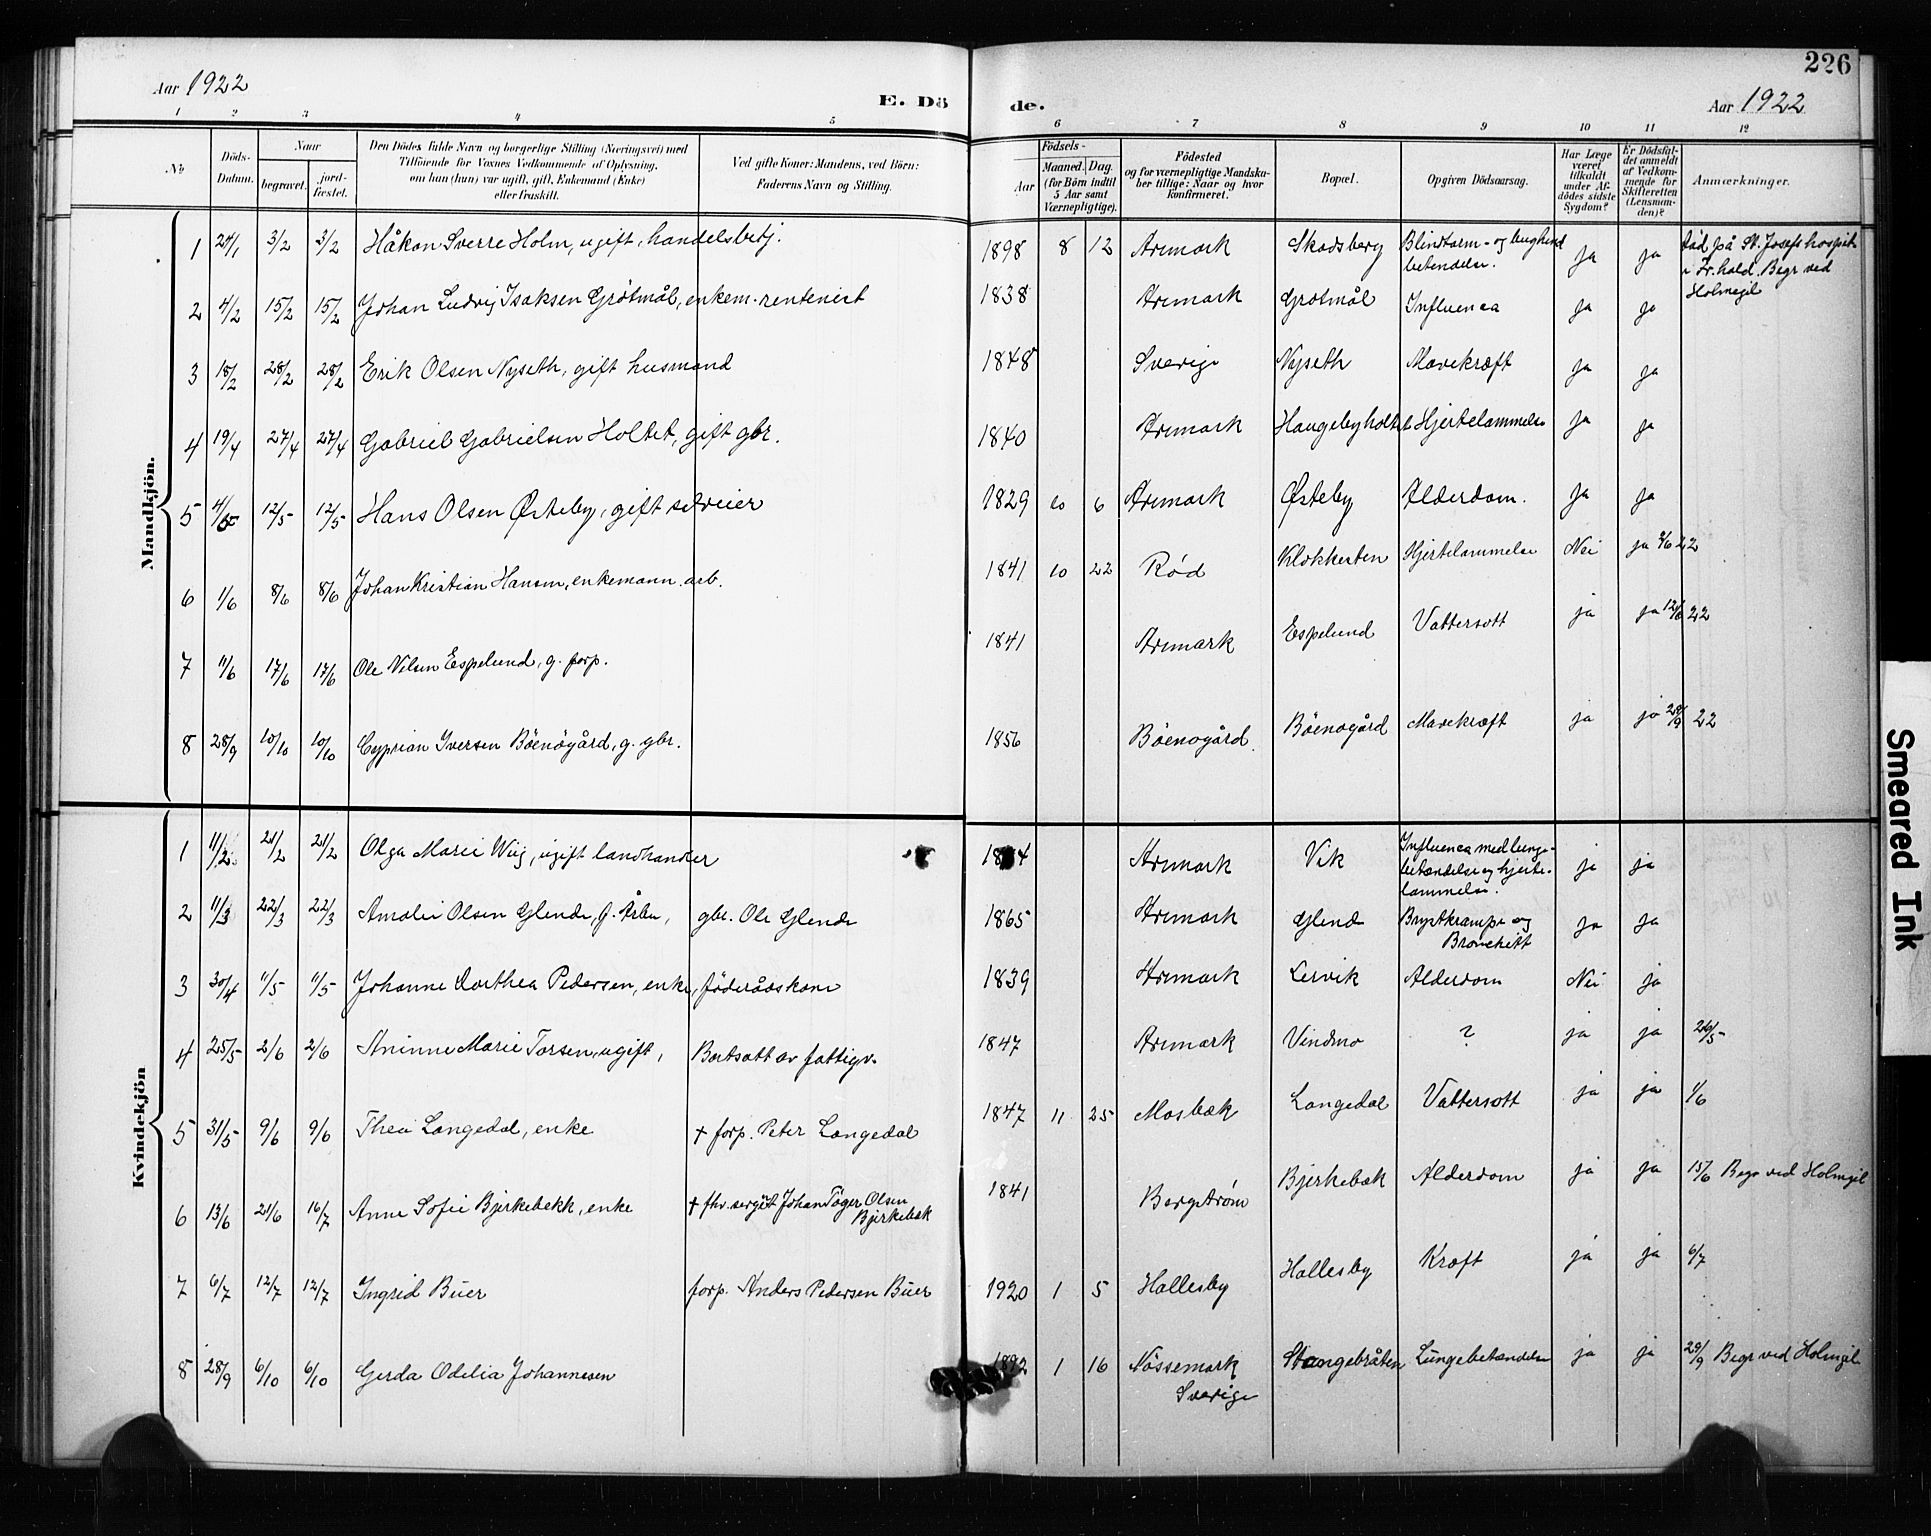 226
Aar 1922
E. Dö
de.
Aar 1922
1 2 3 4 5
6 7 8 9 10 11 12
No
Döds-
Datum.
Naar
begravet.
jord-
fæstet.
Den Dödes fulde Navn og borgerlige Stilling (Næringsvei) med
Tilföiende for Voxnes Vedkommende af Oplysning,
om han (hun) var ugift, gift, Enkemand (Enke)
eller fraskilt.
Ved gifte Koner: Mandens, ved Börn:
Faderens Navn og Stilling.
Födsels-
Aar
Maaned. Dag.
(for Börn indtil
5 Aar samt
Værnepligtige).
Födested
og for værnepligtige Mandska-
ber tillige: Naar og hvor
konfirmeret.
Bopæl.
Opgiven Dödsaarsag.
Har Læge
været
tilkaldt
under Af-
dödes sidste
Sygdom?
Er Dödsfal-
det anmeldt
af Vedkom-
mende for
Skifteretten
(Lensman-
den)?
Anmærkninger.
Mandkjön.
1 24/1 3/2 3/2 Håkon Sverre Holm, ugift, handelsbetj. 1898 8 12 Aremark Skodsberg Blindtarm- og bughind
betendelse. ja ja Død på St. Josefs hospit.
i Fr.hald. Begr ved
Holmegil
2 4/2 15/2 15/2 Johan Ludvig Isaksen Grötmål, enkem. rentenist 1838 Aremark Grotmål Influensa ja ja
3 18/2 28/2 28/2 Erik Olsen Nyseth, gift husmand 1848 Sverige Nyseth Mavekræft ja ja
4 19/4 27/4 27/4 Gabriel Gabrielsen Holtet, gift gbr. 1840 Aremark Haugebyholtet Hjertelammelse ja ja
5 4/5 12/5 12/5 Hans Olsen Østeby, gift selveier 1829 10 6 Aremark Østeby Alderdom. ja ja
6 1/6 8/6 8/6 Johan Kristian Hansen, enkemann. arb. 1841 10 22 Rød Klokkerten Hjertelammelse Nei ja 2/6 22
7 11/6 17/6 17/6 Ole Nilsen Espelund, g. forp. 1841 Aremark Espelund Vattersott ja ja 12/6 22
8 28/9 10/10 10/10 Cyprian Iversen Böenögård, g. gbr. 1856 Böenogård Böenogård Mavekræft ja ja 28/9 22
Kvindekjön
1 11/2 21/2 21/2 Olga Marie Wiig, ugift landhandler Aremark Vik Influensa med lunge-
betændelse og hjerte-
lammelse. ja ja
2 11/3 22/3 22/3 Amalie Olsen Glende, f. Årbu, gbr. Ole Glende 1865 Aremark Glende Brystkrampe og
Bronchitt ja ja
3 30/4 11/5 11/5 Johanne Dorthea Pedersen, enke, föderådskone 1839 Aremark Lervik Alderdom Nei ja
4 25/5 2/6 2/6 Aninne Marie Torsen, ugift, Bortsatt av fattigv. 1847 Aremark Vindmo ? ja ja 26/5
5 31/5 9/6 9/6 Thea Langedal, enke + forp. Peter Langedal 1847 11 25 Mosbæk Langedal Vattersott ja ja 1/6
6 13/6 21/6 16/7 Anne Sofie Bjerkebekk, enke + fhv. sergt Johan Töger Olsen
Bjerkebæk 1841 Bergstrøm Bjerkebæk Alderdom ja ja 15/6 Begr ved Holmgil
7 6/7 12/7 12/7 Ingrid Buer forp. Anders Pedersen Buer 1920 1 5 Hallesby Hallesby Kræft ja ja 6/7
8 28/9 6/10 6/10 Gerda Odelia Johannesen 1892 1 16 Nössemark
Sverige Stangebråten Lungebetændelse ja ja 29/9 Begr ved Holmgil
Smeared Ink